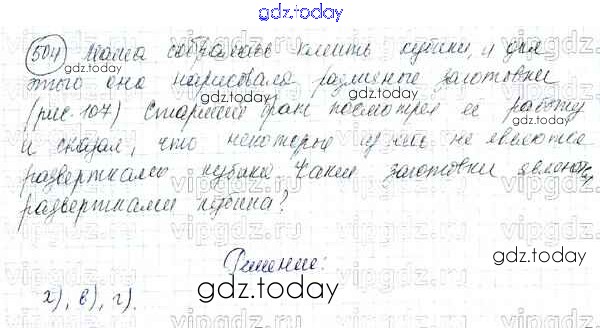 gdz.today
504 Маша собралась клеить кубики, и для
этого она нарисовала различные заготовки
(рис. 107) Старший брат посмотрел ее работу
и сказал, что некоторые из них не являются
развертками кубика Какие заготовки являются
развертками кубика?
Решение:
а), в), г).
gdz.today
gdz.today
gdz.today
gdz.today
gdz.today
gdz.today
vipgdz.ru
vipgdz.ru